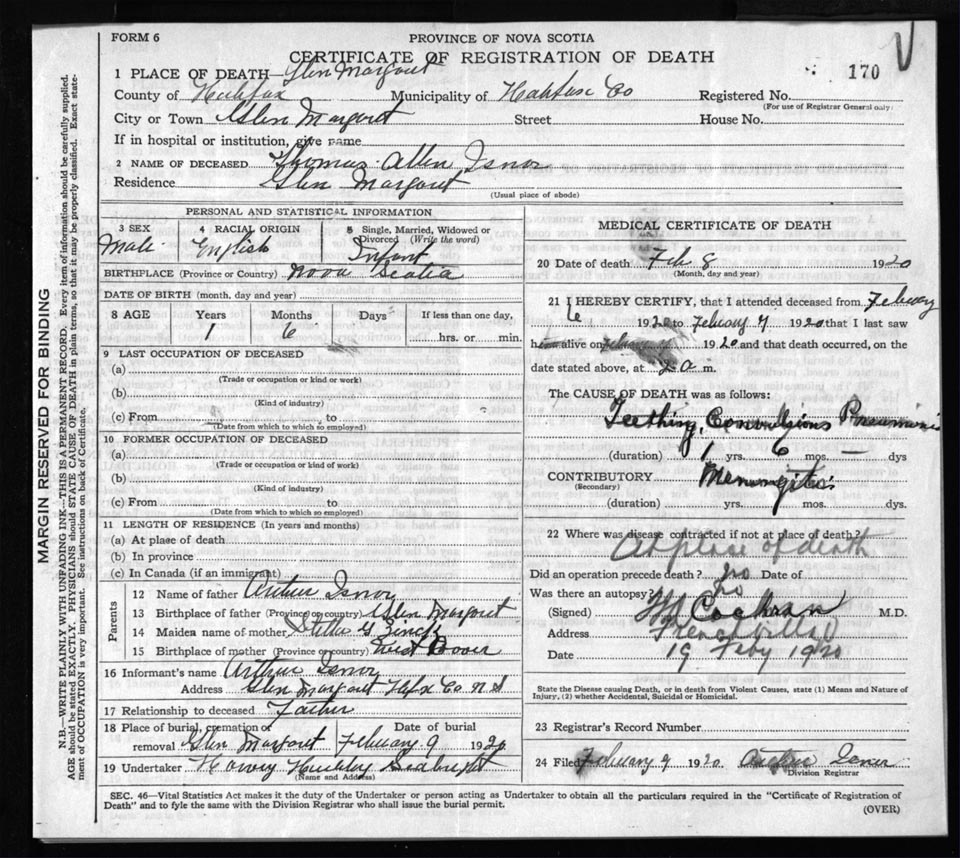 FORM 6
PROVINCE OF NOVA SCOTIA
CERTIFICATE OF REGISTRATION OF DEATH
170
1 PLACE OF DEATH—Glen Margaret
County of Halifax Municipality of Halifax Co Registered No.
(For use of Registrar General only)
City or Town Glen Margaret Street House No.
If in hospital or institution, give name
2 NAME OF DECEASED Thomas Allen Isnor
Residence Glen Margaret
(Usual place of abode)
PERSONAL AND STATISTICAL INFORMATION
3 SEX 4 RACIAL ORIGIN 5 Single, Married, Widowed or Divorced (Write the word)
Male English Infant
BIRTHPLACE (Province or Country) Nova Scotia
DATE OF BIRTH (month, day and year)
8 AGE Years Months Days If less than one day,
1 6 hrs. or min.
9 LAST OCCUPATION OF DECEASED
(a)
(Trade or occupation or kind or work)
(b)
(Kind of industry)
(c) From to
(Date from which to which so employed)
10 FORMER OCCUPATION OF DECEASED
(a)
(Trade or occupation or kind of work)
(b)
(Kind of industry)
(c) From to
(Date from which to which so employed)
11 LENGTH OF RESIDENCE (In years and months)
(a) At place of death
(b) In province
(c) In Canada (if an immigrant)
Parents
12 Name of father Arthur Isnor
13 Birthplace of father (Province or country) Glen Margaret
14 Maiden name of mother Stella G Zinck
15 Birthplace of mother (Province or country) West Dover
16 Informant's name Arthur Isnor
Address Glen Margaret Hfx Co. N S
17 Relationship to deceased Father
18 Place of burial, cremation or removal Glen Margaret Date of burial February 9 1920
19 Undertaker Harvey Hubley Seabright
(Name and Address)
MEDICAL CERTIFICATE OF DEATH
20 Date of death Feb 8 1920
(Month, day and year)
21 I HEREBY CERTIFY, that I attended deceased from February
6 1920 to February 7 1920 that I last saw
him alive on 1920 and that death occurred, on the
date stated above, at 2 a m.
The CAUSE OF DEATH was as follows:
Teething, Convulsions Pneumonia
(duration) 1 yrs. 6 mos. — dys
CONTRIBUTORY Meningitis
(Secondary)
(duration) yrs. mos. dys.
22 Where was disease contracted if not at place of death?
At place of death
Did an operation precede death? no Date of
Was there an autopsy? no
(Signed) Cochran M.D.
Address
Date 19 Feby 1920
State the Disease causing Death, or in death from Violent Causes, state (1) Means and Nature of
Injury, (2) whether Accidental, Suicidal or Homicidal.
23 Registrar's Record Number
24 Filed February 9 1920. Arthur Isnor
Division Registrar
SEC. 46—Vital Statistics Act makes it the duty of the Undertaker or person acting as Undertaker to obtain all the particulars required in the "Certificate of Registration of
Death" and to fyle the same with the Division Registrar who shall issue the burial permit.
(OVER)
MARGIN RESERVED FOR BINDING
N.B.—WRITE PLAINLY WITH UNFADING INK—THIS IS A PERMANENT RECORD. Every item of information should be carefully supplied.
AGE should be stated EXACTLY. PHYSICIANS should STATE CAUSE OF DEATH in plain terms, so that it may be properly classified. Exact state-
ment of OCCUPATION is very important. See instructions on back of Certificate.